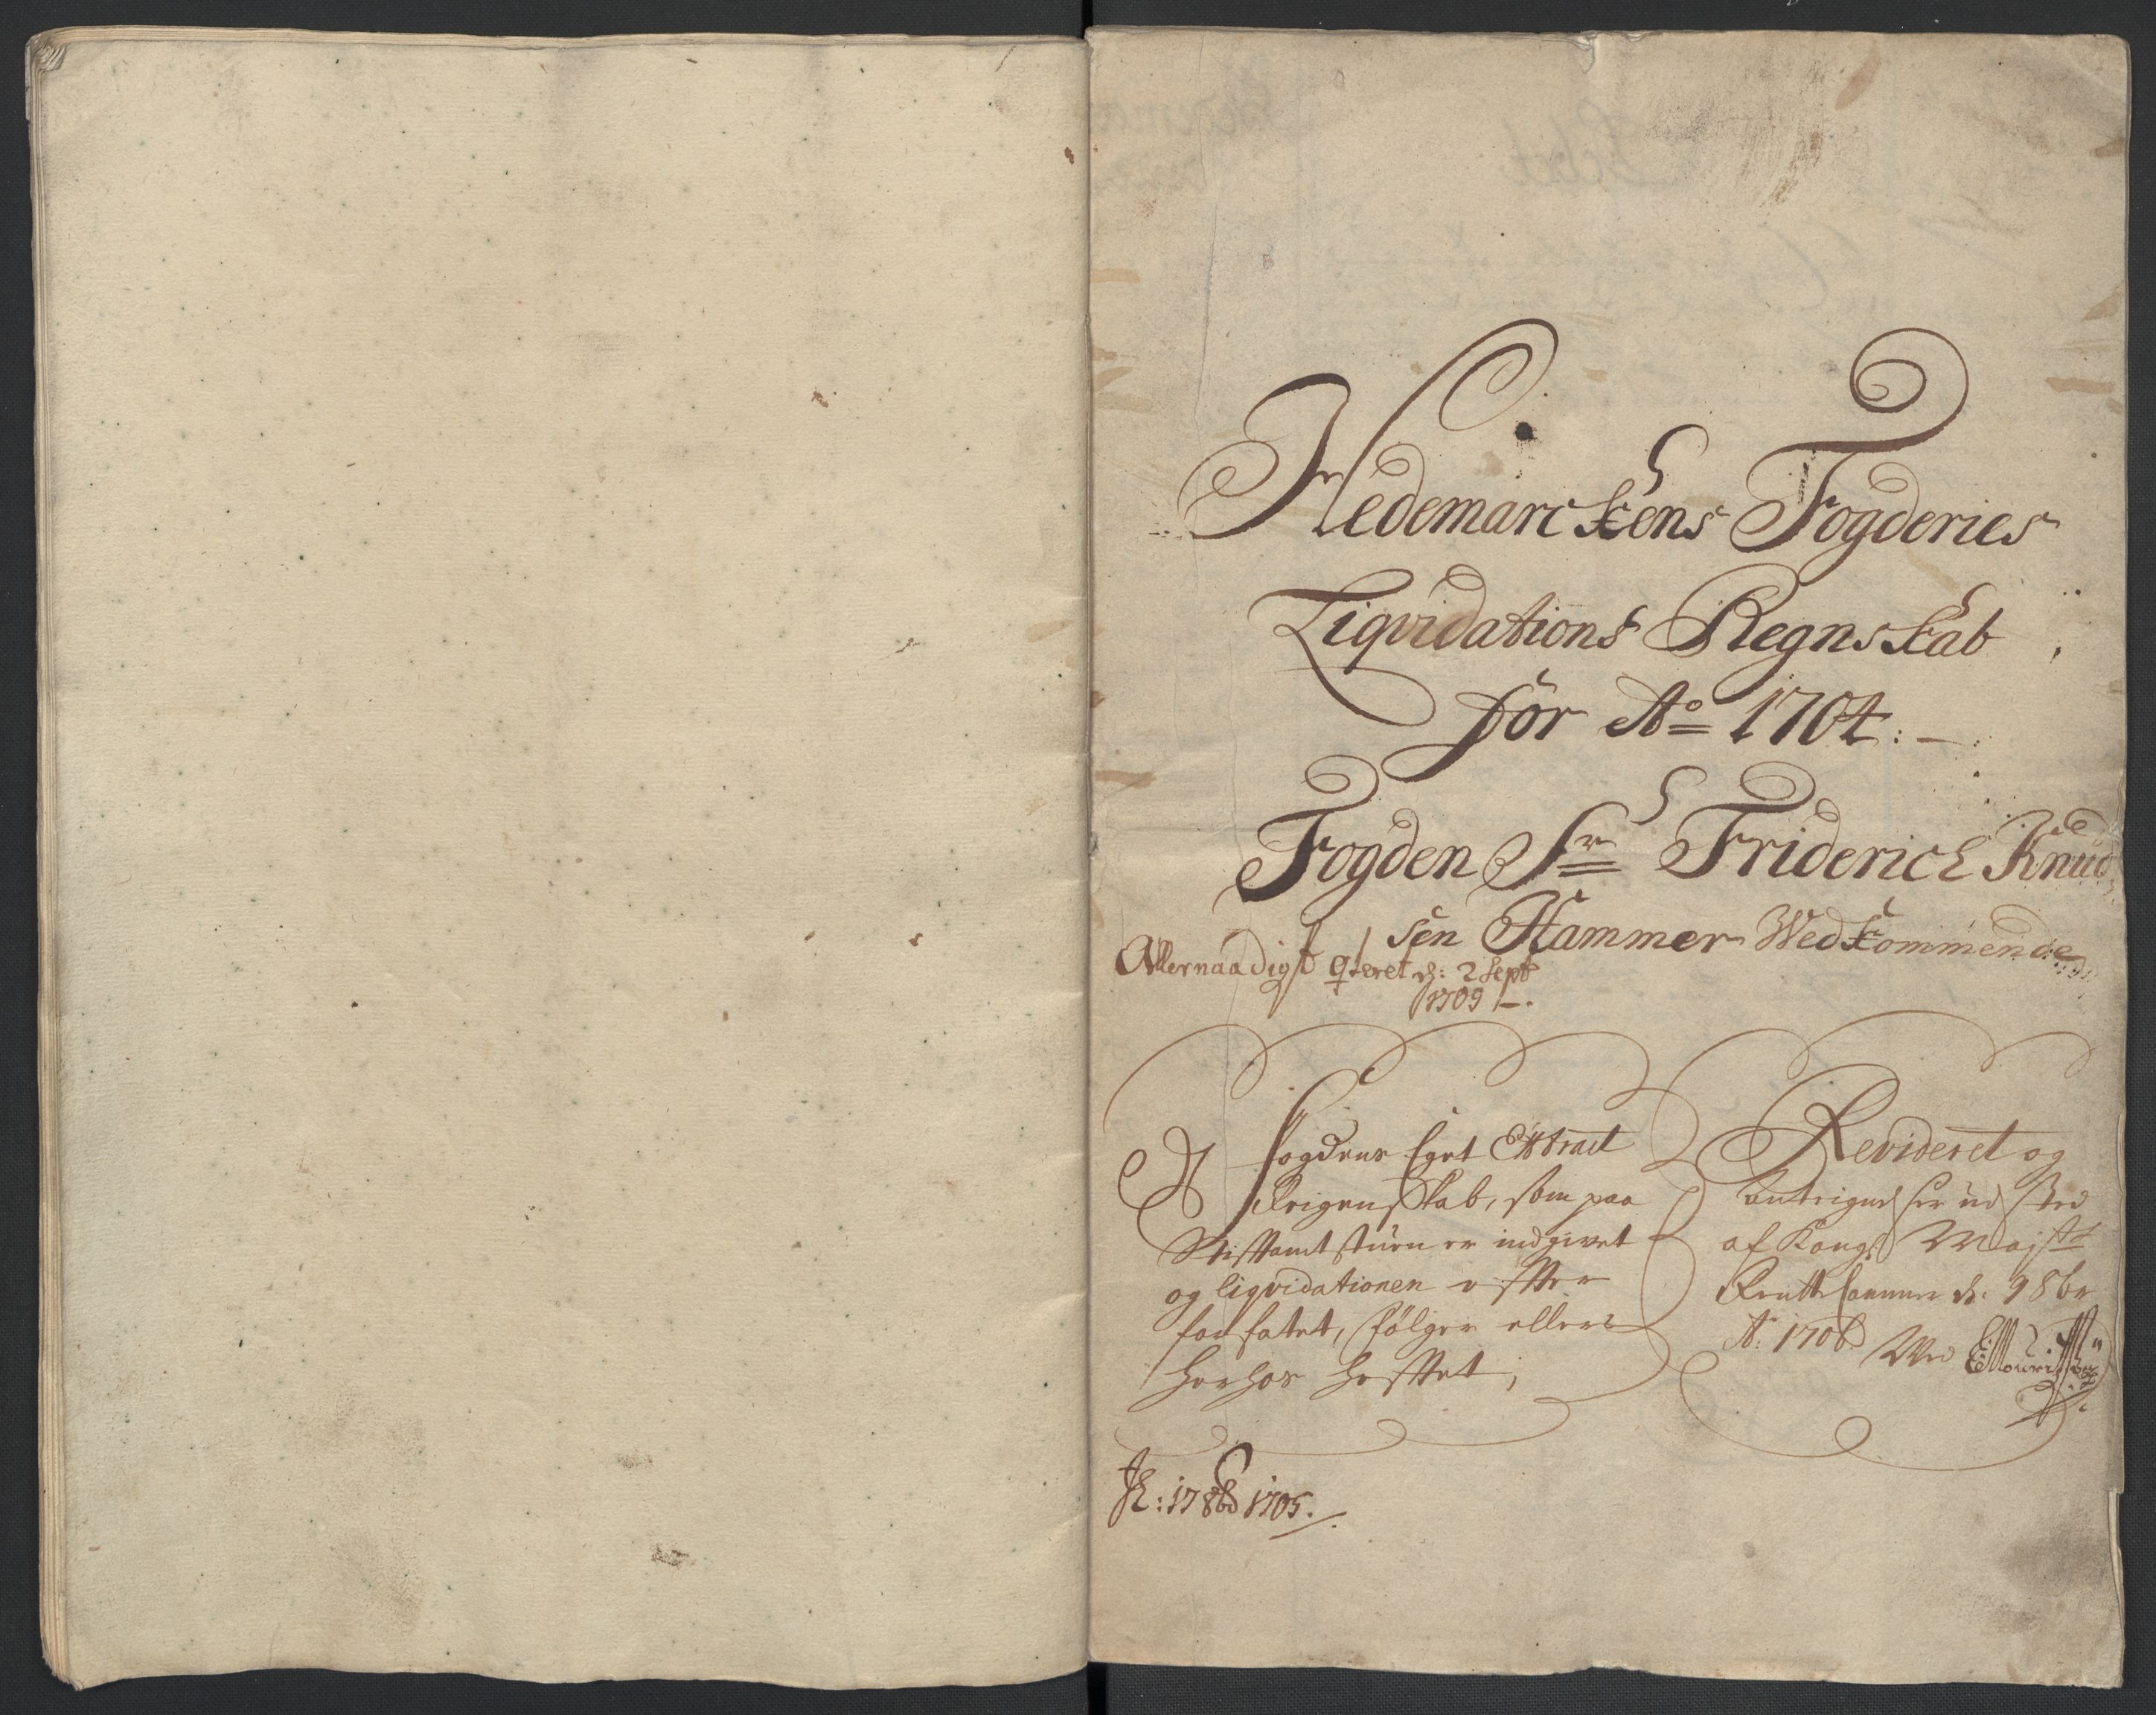 Hedemarckens Fogderies
Liqvidations Regnskab
for Ao 1704.
Fogden Sr Friderich Knud
sen Hammer Vedkommende
Allernaadigst qteret d: 2 Sept
1709
Fogdens Eget Extract
Reigenskab, som paa
Stiftamtstuen er indgivet
og liqvidationen efter
forfatet, følger ellers
herhos heftet;
Revideret og
antegnelser udsted
af Kongl Mayst
Rentte Cammer d: 9 8br
Ao 1706
17 8br 1705.